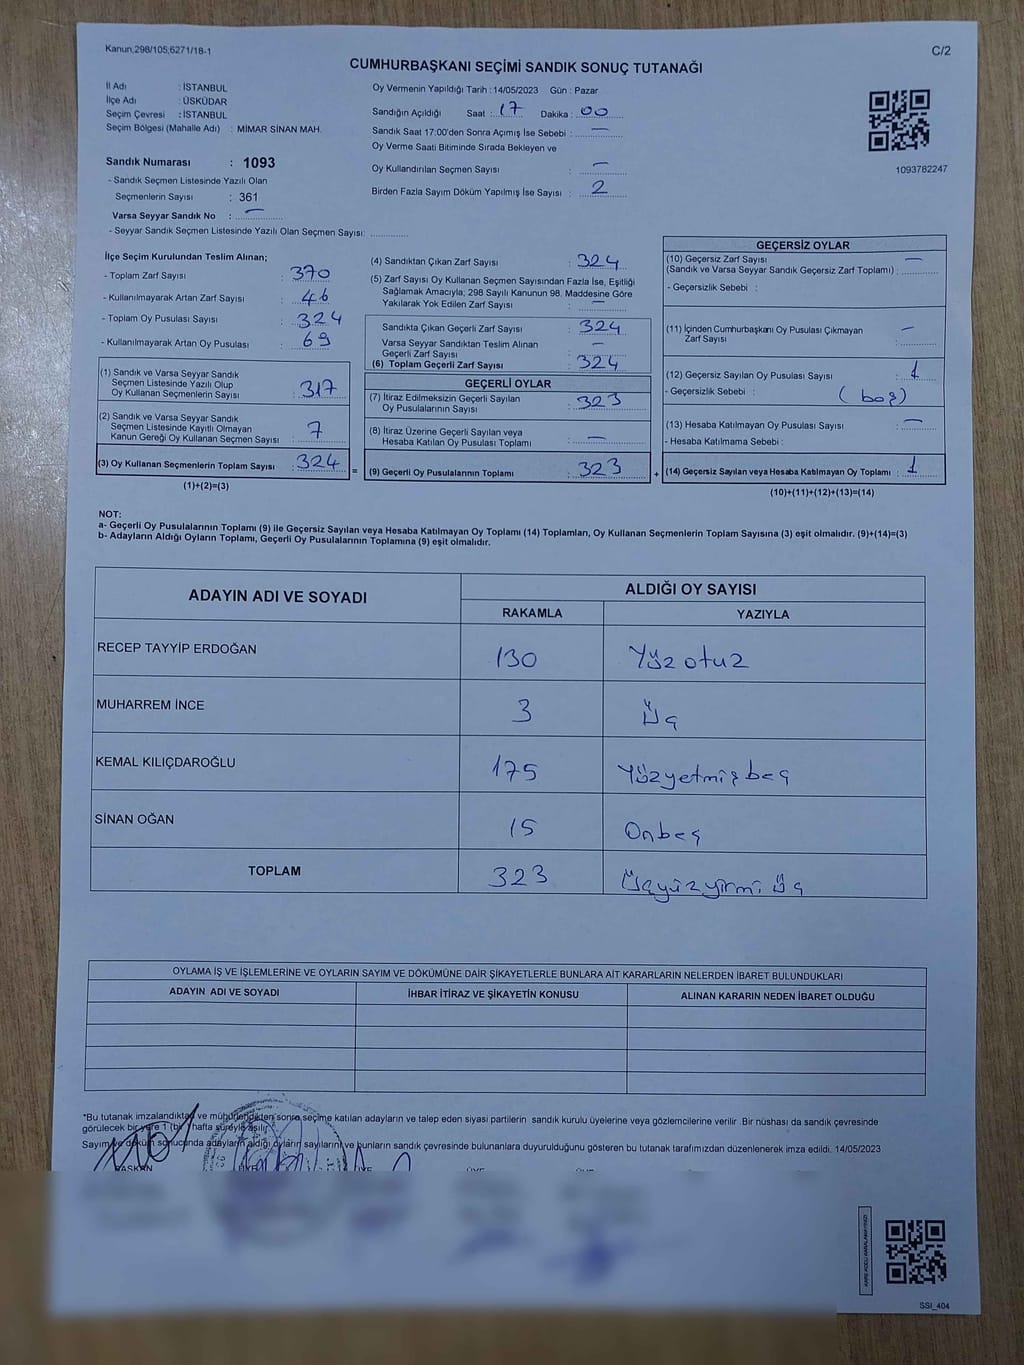 Kanun,298/105;6271/18-1
C/2
CUMHURBAŞKANI SEÇİMİ SANDIK SONUÇ TUTANAĞI
İl Adı : İSTANBUL
İlçe Adı : ÜSKÜDAR
Seçim Çevresi : İSTANBUL
Seçim Bölgesi (Mahalle Adı) : MİMAR SİNAN MAH.
Sandık Numarası : 1093
- Sandık Seçmen Listesinde Yazılı Olan
Seçmenlerin Sayısı : 361
Varsa Seyyar Sandık No : —
- Seyyar Sandık Seçmen Listesinde Yazılı Olan Seçmen Sayısı:
Oy Vermenin Yapıldığı Tarih : 14/05/2023 Gün : Pazar
Sandığın Açıldığı Saat : 17 Dakika : 00
Sandık Saat 17:00'den Sonra Açımış İse Sebebi : —
Oy Verme Saati Bitiminde Sırada Bekleyen ve
Oy Kullandırılan Seçmen Sayısı : —
Birden Fazla Sayım Döküm Yapılmış İse Sayısı : 2
1093782247
İlçe Seçim Kurulundan Teslim Alınan;
- Toplam Zarf Sayısı : 370
- Kullanılmayarak Artan Zarf Sayısı : 46
- Toplam Oy Pusulası Sayısı : 324
- Kullanılmayarak Artan Oy Pusulası : 69
(1) Sandık ve Varsa Seyyar Sandık
Seçmen Listesinde Yazılı Olup
Oy Kullanan Seçmenlerin Sayısı : 317
(2) Sandık ve Varsa Seyyar Sandık
Seçmen Listesinde Kayıtlı Olmayan
Kanun Gereği Oy Kullanan Seçmen Sayısı : 7
(3) Oy Kullanan Seçmenlerin Toplam Sayısı : 324
(1)+(2)=(3)
(4) Sandıktan Çıkan Zarf Sayısı : 324
(5) Zarf Sayısı Oy Kullanan Seçmen Sayısından Fazla İse, Eşitliği
Sağlamak Amacıyla; 298 Sayılı Kanunun 98. Maddesine Göre
Yakılarak Yok Edilen Zarf Sayısı : —
Sandıkta Çıkan Geçerli Zarf Sayısı : 324
Varsa Seyyar Sandıktan Teslim Alınan
Geçerli Zarf Sayısı : —
(6) Toplam Geçerli Zarf Sayısı : 324
GEÇERLİ OYLAR
(7) İtiraz Edilmeksizin Geçerli Sayılan
Oy Pusulalarının Sayısı : 323
(8) İtiraz Üzerine Geçerli Sayılan veya
Hesaba Katılan Oy Pusulası Toplamı : —
= (9) Geçerli Oy Pusulalarının Toplamı : 323 +
GEÇERSİZ OYLAR
(10) Geçersiz Zarf Sayısı : —
(Sandık ve Varsa Seyyar Sandık Geçersiz Zarf Toplamı)
- Geçersizlik Sebebi :
(11) İçinden Cumhurbaşkanı Oy Pusulası Çıkmayan
Zarf Sayısı : —
(12) Geçersiz Sayılan Oy Pusulası Sayısı : 1
- Geçersizlik Sebebi : (boş)
(13) Hesaba Katılmayan Oy Pusulası Sayısı : —
- Hesaba Katılmama Sebebi :
(14) Geçersiz Sayılan veya Hesaba Katılmayan Oy Toplamı : 1
(10)+(11)+(12)+(13)=(14)
NOT:
a- Geçerli Oy Pusulalarının Toplamı (9) ile Geçersiz Sayılan veya Hesaba Katılmayan Oy Toplamı (14) Toplamları, Oy Kullanan Seçmenlerin Toplam Sayısına (3) eşit olmalıdır. (9)+(14)=(3)
b- Adayların Aldığı Oyların Toplamı, Geçerli Oy Pusulalarının Toplamına (9) eşit olmalıdır.
ADAYIN ADI VE SOYADI
ALDIĞI OY SAYISI
RAKAMLA YAZIYLA
RECEP TAYYİP ERDOĞAN 130 Yüz otuz
MUHARREM İNCE 3 Üç
KEMAL KILIÇDAROĞLU 175 Yüzyetmişbeş
SİNAN OĞAN 15 Onbeş
TOPLAM 323 Üçyüzyirmi üç
OYLAMA İŞ VE İŞLEMLERİNE VE OYLARIN SAYIM VE DÖKÜMÜNE DAİR ŞİKAYETLERLE BUNLARA AİT KARARLARIN NELERDEN İBARET BULUNDUKLARI
ADAYIN ADI VE SOYADI İHBAR İTİRAZ VE ŞİKAYETİN KONUSU ALINAN KARARIN NEDEN İBARET OLDUĞU
*Bu tutanak imzalandıktan ve mühürlendikten sonra seçime katılan adayların ve talep eden siyasi partilerin sandık kurulu üyelerine veya gözlemcilerine verilir. Bir nüshası da sandık çevresinde
görülecek bir yere 1 (bir) hafta süreyle asılır.
Sayım ve döküm sonucunda adayların aldığı oyların sayılarını ve bunların sandık çevresinde bulunanlara duyurulduğunu gösteren bu tutanak tarafımızdan düzenlenerek imza edildi. 14/05/2023
BAŞKAN ÜYE ÜYE ÜYE ÜYE
SSİ_404